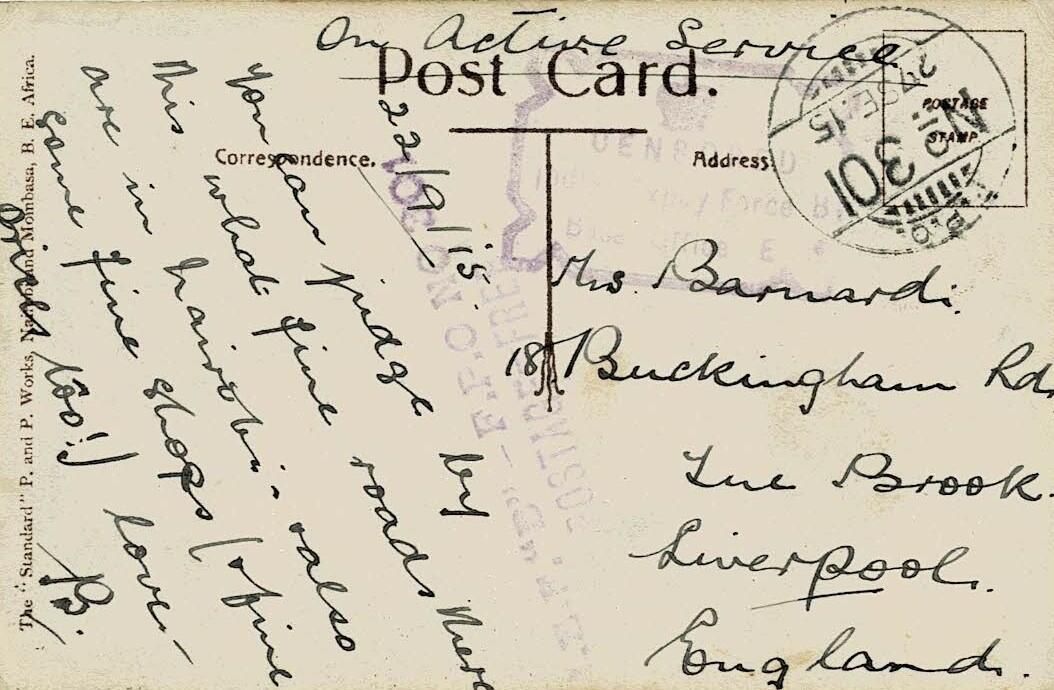 On Active Service
Post Card.
Correspondence.
Address.
POSTAGE
STAMP.
27 SE. 15
No 301
F.P.O.
CENSORED
Force B.
Base Office E
F.P.O NO 301
POSTAGE FREE
22/9/15.
You can judge by
this what fine roads there
are in Nairobi - also
some fine shops (of fine
prices too!) love -
B.
Mrs. Barnardi.
18 Buckingham Rd.
Tue Brook.
Liverpool.
England.
The "Standard" P. and P. Works, Nairobi and Mombasa, B. E. Africa.